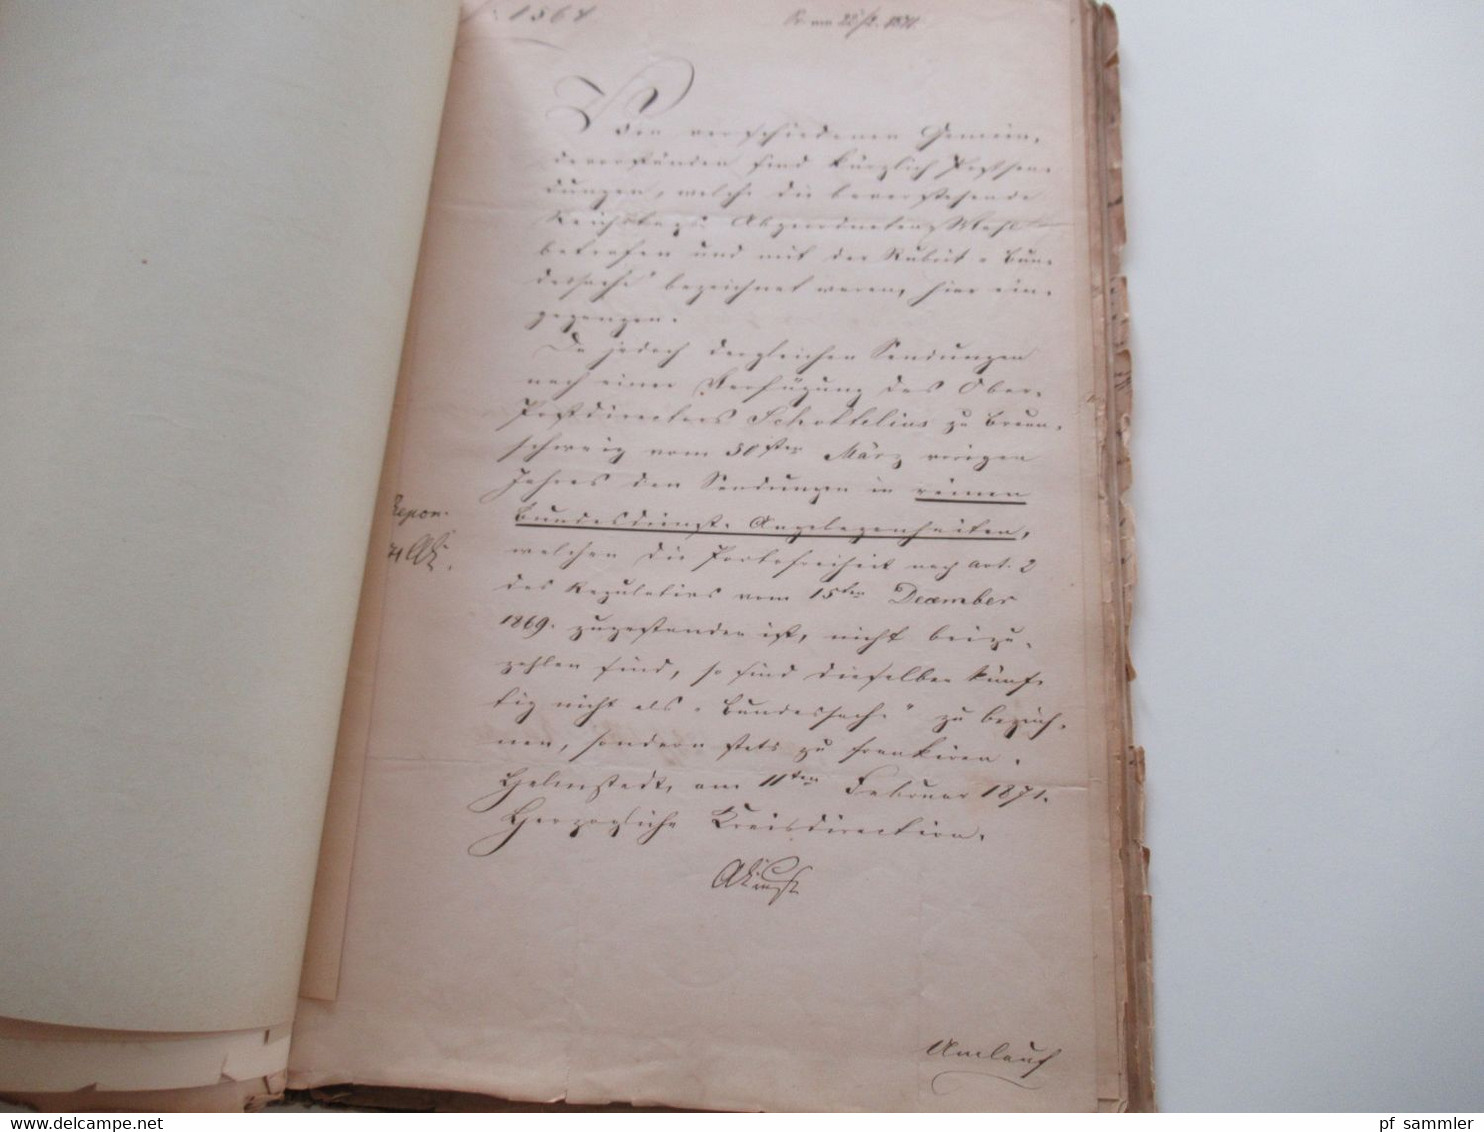 1564
Pr. am 22/2. 1871.
Von verschiedenen Gemein-
devorständen sind kürzlich Postsen-
dungen, welche die bevorstehende
Reichstags-Abgeordneten-Wahl
betrafen und mit der Rubrik „Bun-
dessache" bezeichnet waren, hier ein-
gegangen.
Da jedoch dergleichen Sendungen
nach einer Verfügung des Ober-
Postdirectors Schottelius zu Braun-
schweig vom 30sten März vorigen
Jahres den Sendungen in reinen
Bundesdienst-Angelegenheiten,
welchen die Portofreiheit nach Art. 2
des Regulativs vom 15ten December
1869. zugestanden ist, nicht beizu-
zählen sind, so sind dieselben künf-
tig nicht als „Bundessache" zu bezeich-
nen, sondern stets zu frankiren.
Helmstedt, am 11ten Februar 1871.
Herzogliche Kreisdirection.
Repon.
Umlauf
pf sammler
www.delcampe.net